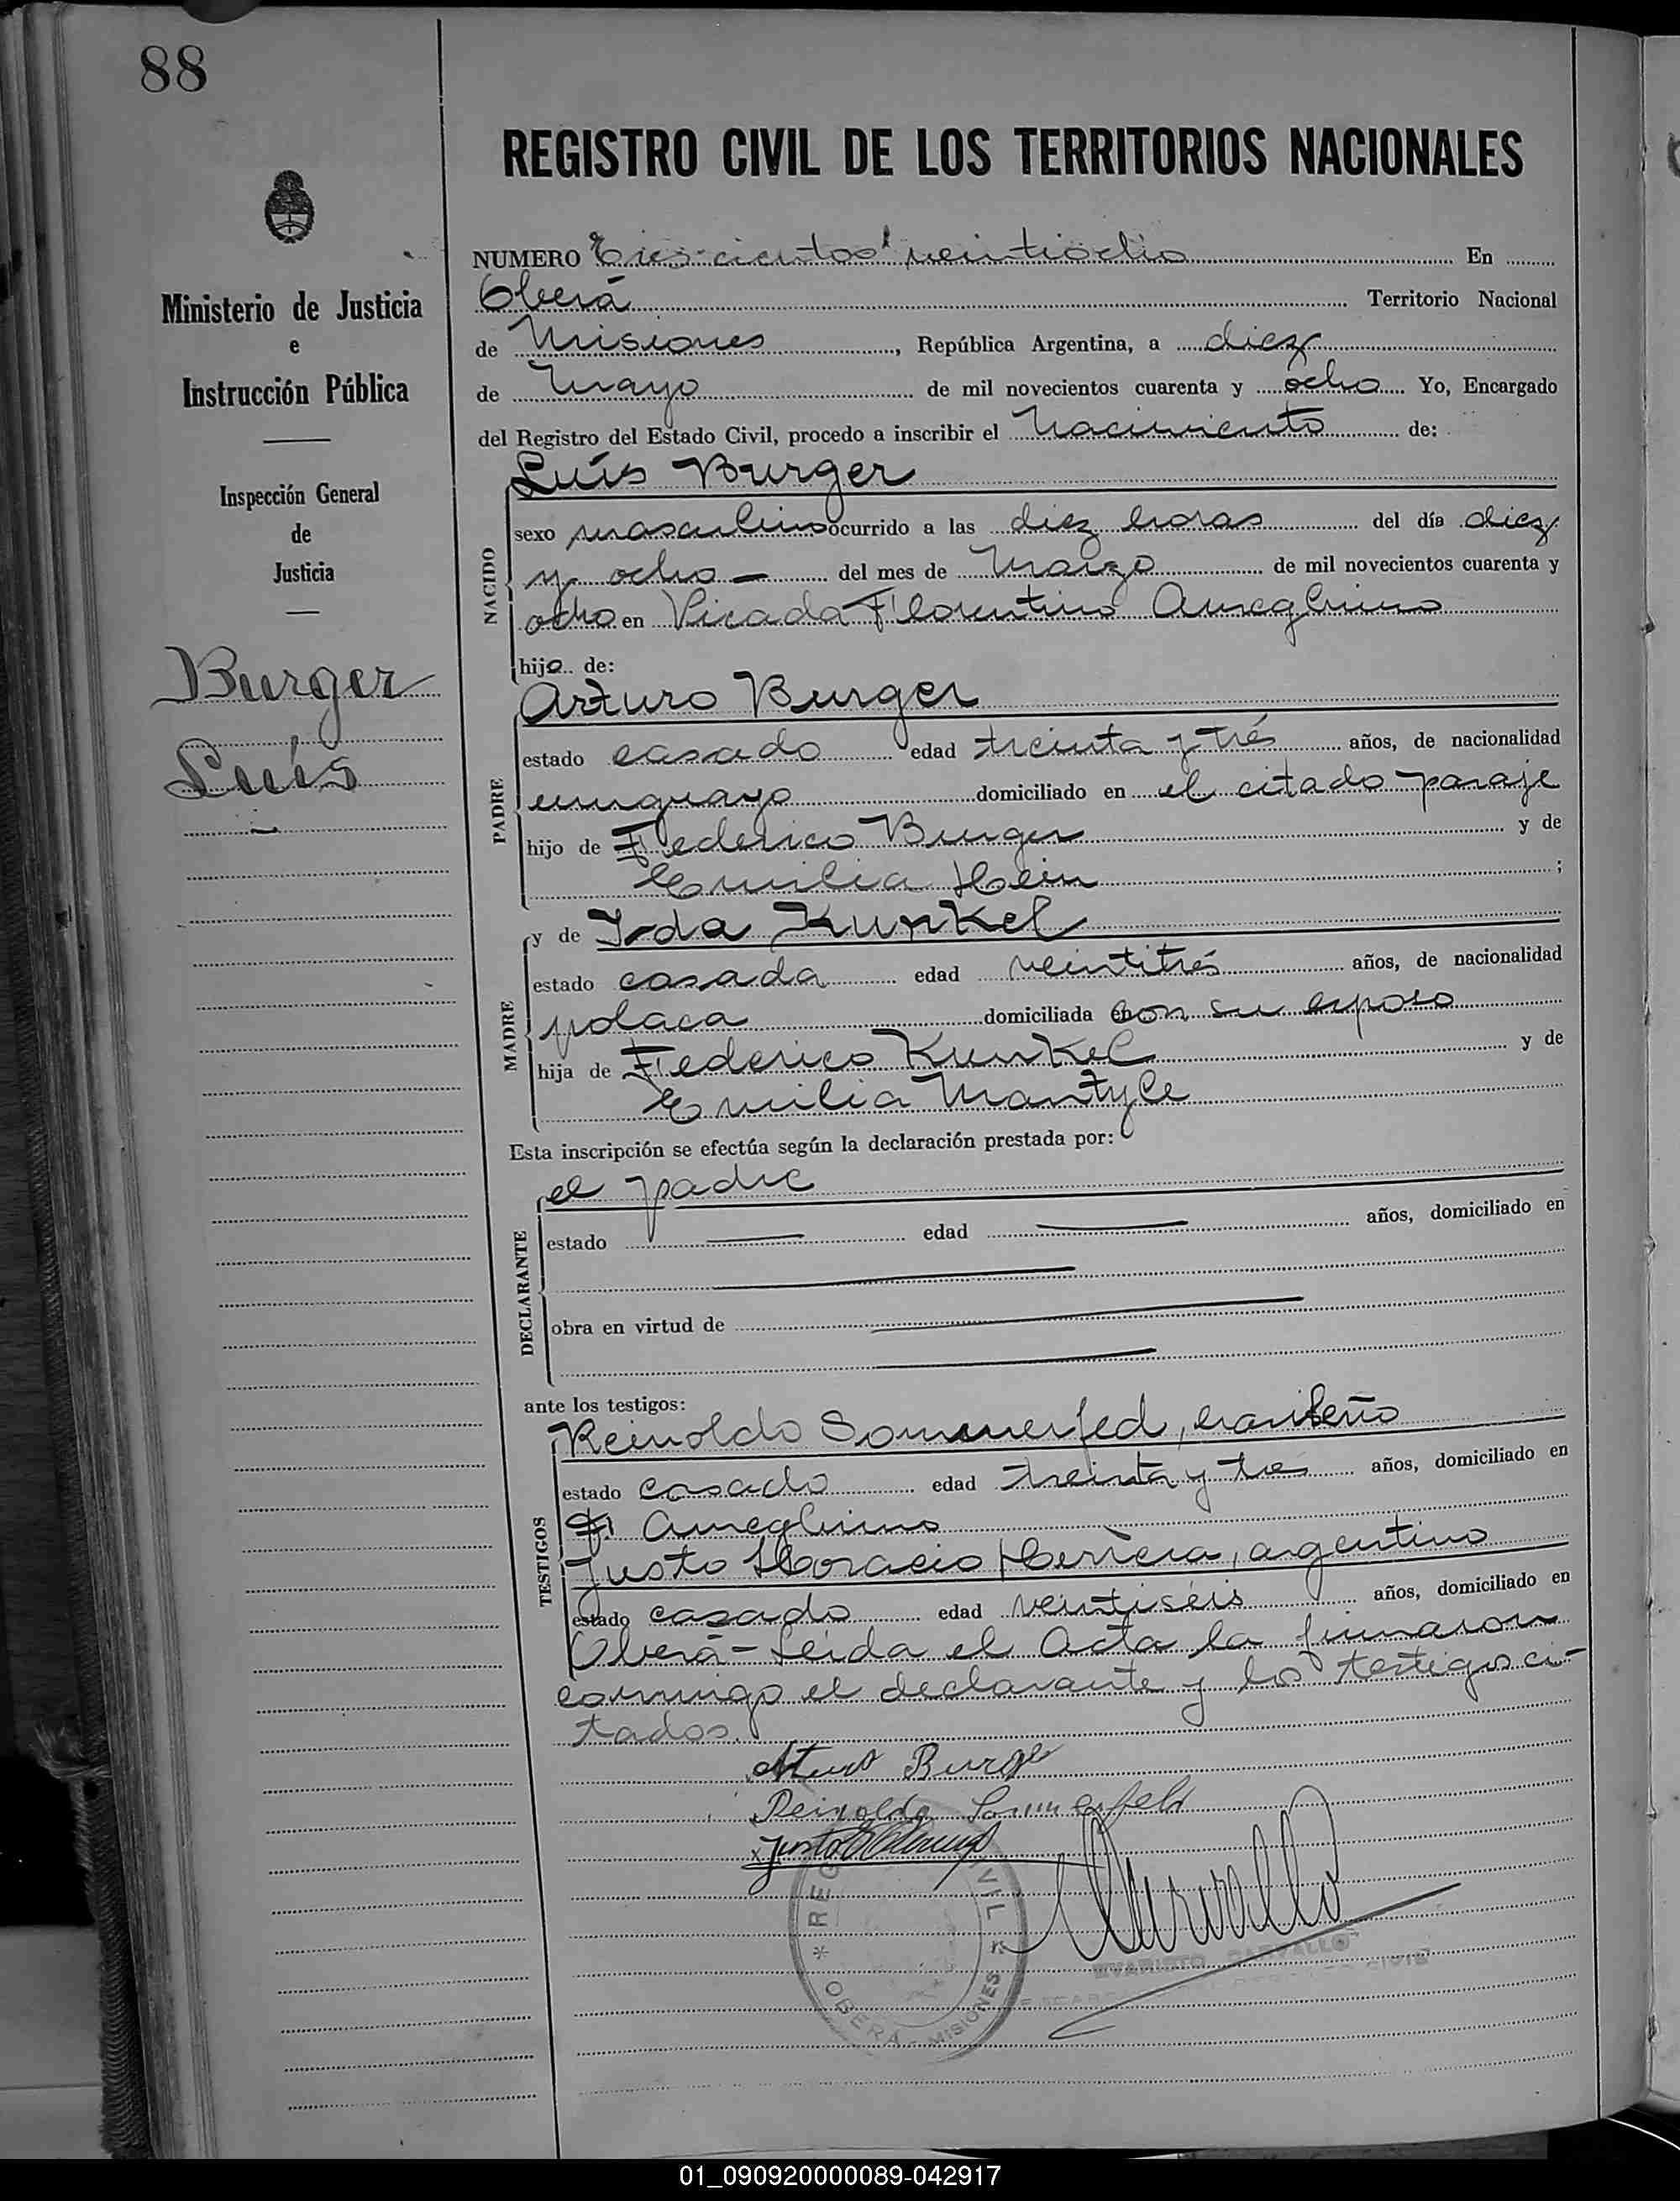 88
REGISTRO CIVIL DE LOS TERRITORIOS NACIONALES
Ministerio de Justicia
e
Instrucción Pública
Inspección General
de
Justicia
Burger
Luís
NUMERO Trescientos veintiocho En
Oberá Territorio Nacional
de Misiones, República Argentina, a diez
de Mayo de mil novecientos cuarenta y ocho Yo, Encargado
del Registro del Estado Civil, procedo a inscribir el Nacimiento de:
Luís Burger
NACIDO
sexo masculino ocurrido a las diez horas del día diez
y ocho — del mes de Marzo de mil novecientos cuarenta y
ocho en Picada Florentino Ameghino
hijo de:
Arturo Burger
PADRE
estado casado edad treinta y trés años, de nacionalidad
uruguayo domiciliado en el citado paraje
hijo de Federico Burger y de
Emilia Hein ;
y de Irda Kunkel
MADRE
estado casada edad veintitrés años, de nacionalidad
polaca domiciliada en con su esposo
hija de Federico Kunkel y de
Emilia Mantyle
Esta inscripción se efectúa según la declaración prestada por:
el padre
DECLARANTE
estado — edad — años, domiciliado en
obra en virtud de
ante los testigos:
Reinoldo Sommerfed, brasileño
TESTIGOS
estado casado edad treinta y tres años, domiciliado en
F. Ameghino
Justo Horacio Herrera, argentino
estado casado edad veintiséis años, domiciliado en
Oberá - Leida el Acta la firmaron
conmigo el declarante y los testigos ci-
tados.
Arturo Burger
Reinoldo Sommerfeld
EVARISTO CARVALLO
REG VIL
* OBERÁ - MISIONES *
01_090920000089-042917